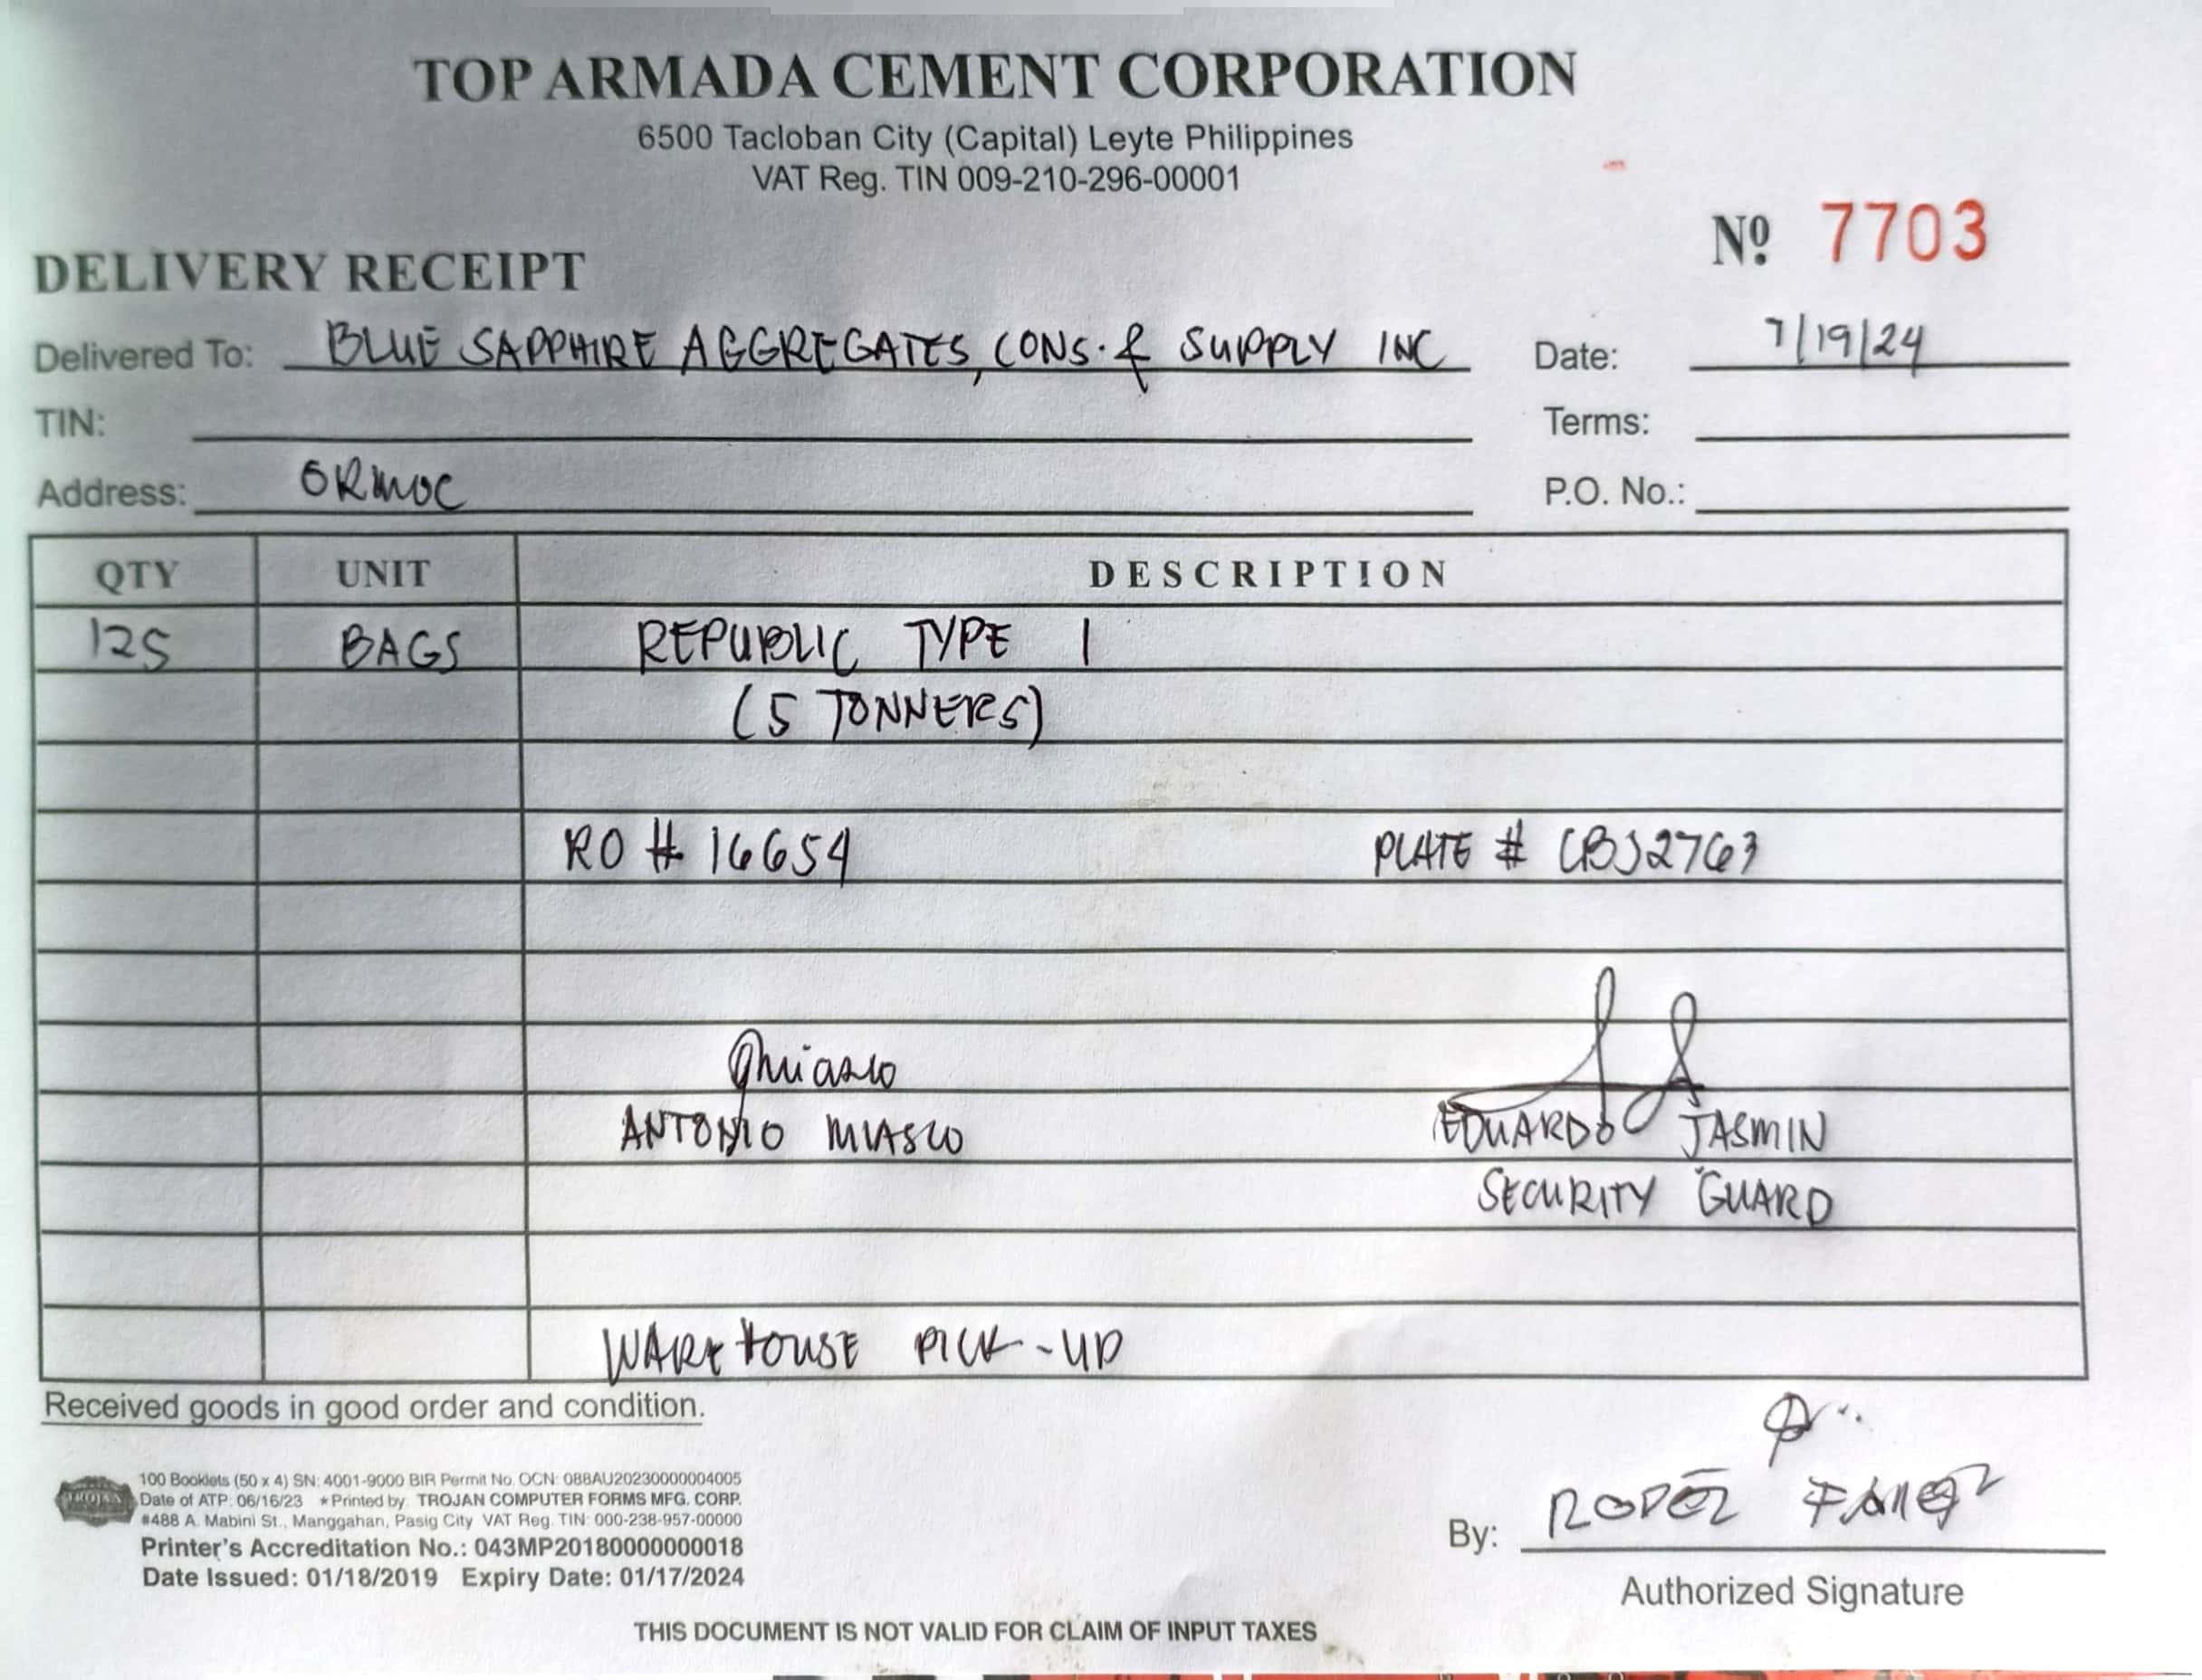 TOP ARMADA CEMENT CORPORATION
6500 Tacloban City (Capital) Leyte Philippines
VAT Reg. TIN 009-210-296-00001
Nº 7703
DELIVERY RECEIPT
Delivered To: BLUE SAPPHIRE AGGREGATES, CONS. & SUPPLY INC Date: 7/19/24
TIN: Terms:
Address: ORMOC P.O. No.:
QTY UNIT DESCRIPTION
125 BAGS REPUBLIC TYPE 1
(5 TONNERS)
RO # 16654 PLATE # CBJ2763
ANTONIO MIASCO EDUARDO JASMIN
SECURITY GUARD
WAREHOUSE PICK-UP
Received goods in good order and condition.
100 Booklets (50 x 4) SN: 4001-9000 BIR Permit No. OCN: 088AU20230000004005
Date of ATP: 06/16/23 * Printed by: TROJAN COMPUTER FORMS MFG. CORP.
#488 A. Mabini St., Manggahan, Pasig City VAT Reg. TIN: 000-238-957-00000
Printer's Accreditation No.: 043MP20180000000018
Date Issued: 01/18/2019 Expiry Date: 01/17/2024
TROJAN
By:
Authorized Signature
THIS DOCUMENT IS NOT VALID FOR CLAIM OF INPUT TAXES